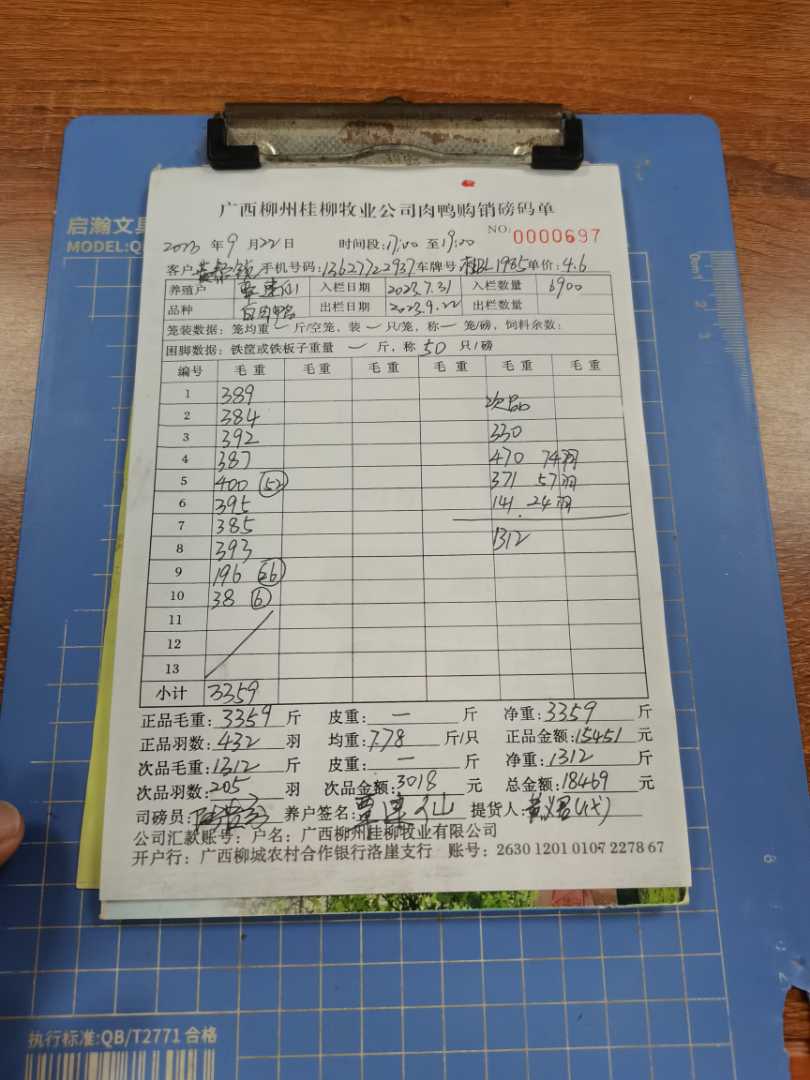 启瀚文具
MODEL:Q
广西柳州桂柳牧业公司肉鸭购销磅码单
NO: 0000697
2023 年 9 月 22 日 时间段: 17:00 至 19:00
客户 手机号码: 13627722937 车牌号 单价: 4.6
养殖户 覃建仙 入栏日期 2023.7.31 入栏数量 6900
品种 出栏日期 2023.9.22 出栏数量
笼装数据: 笼均重 一 斤/空笼, 装 一 只/笼, 称 一 笼/磅, 饲料余数:
困脚数据: 铁筐或铁板子重量 一 斤, 称 50 只/磅
编号 毛重 毛重 毛重 毛重 毛重 毛重
1 389
2 384 次品
3 392 330
4 387 470 74羽
5 400 (52) 371 57羽
6 395 141 24羽
7 385
8 393 1312
9 196 (26)
10 38 (6)
11
12
13
小计 3359
正品毛重: 3359 斤 皮重: 一 斤 净重: 3359 斤
正品羽数: 432 羽 均重: 7.78 斤/只 正品金额: 15451 元
次品毛重: 1312 斤 皮重: 一 斤 净重: 1312 斤
次品羽数: 205 羽 次品金额: 3018 元 总金额: 18469 元
司磅员: 养户签名: 覃建仙 提货人:
公司汇款账号: 户名: 广西柳州桂柳牧业有限公司
开户行: 广西柳城农村合作银行洛崖支行 账号: 2630 1201 0107 2278 67
执行标准:QB/T2771 合格